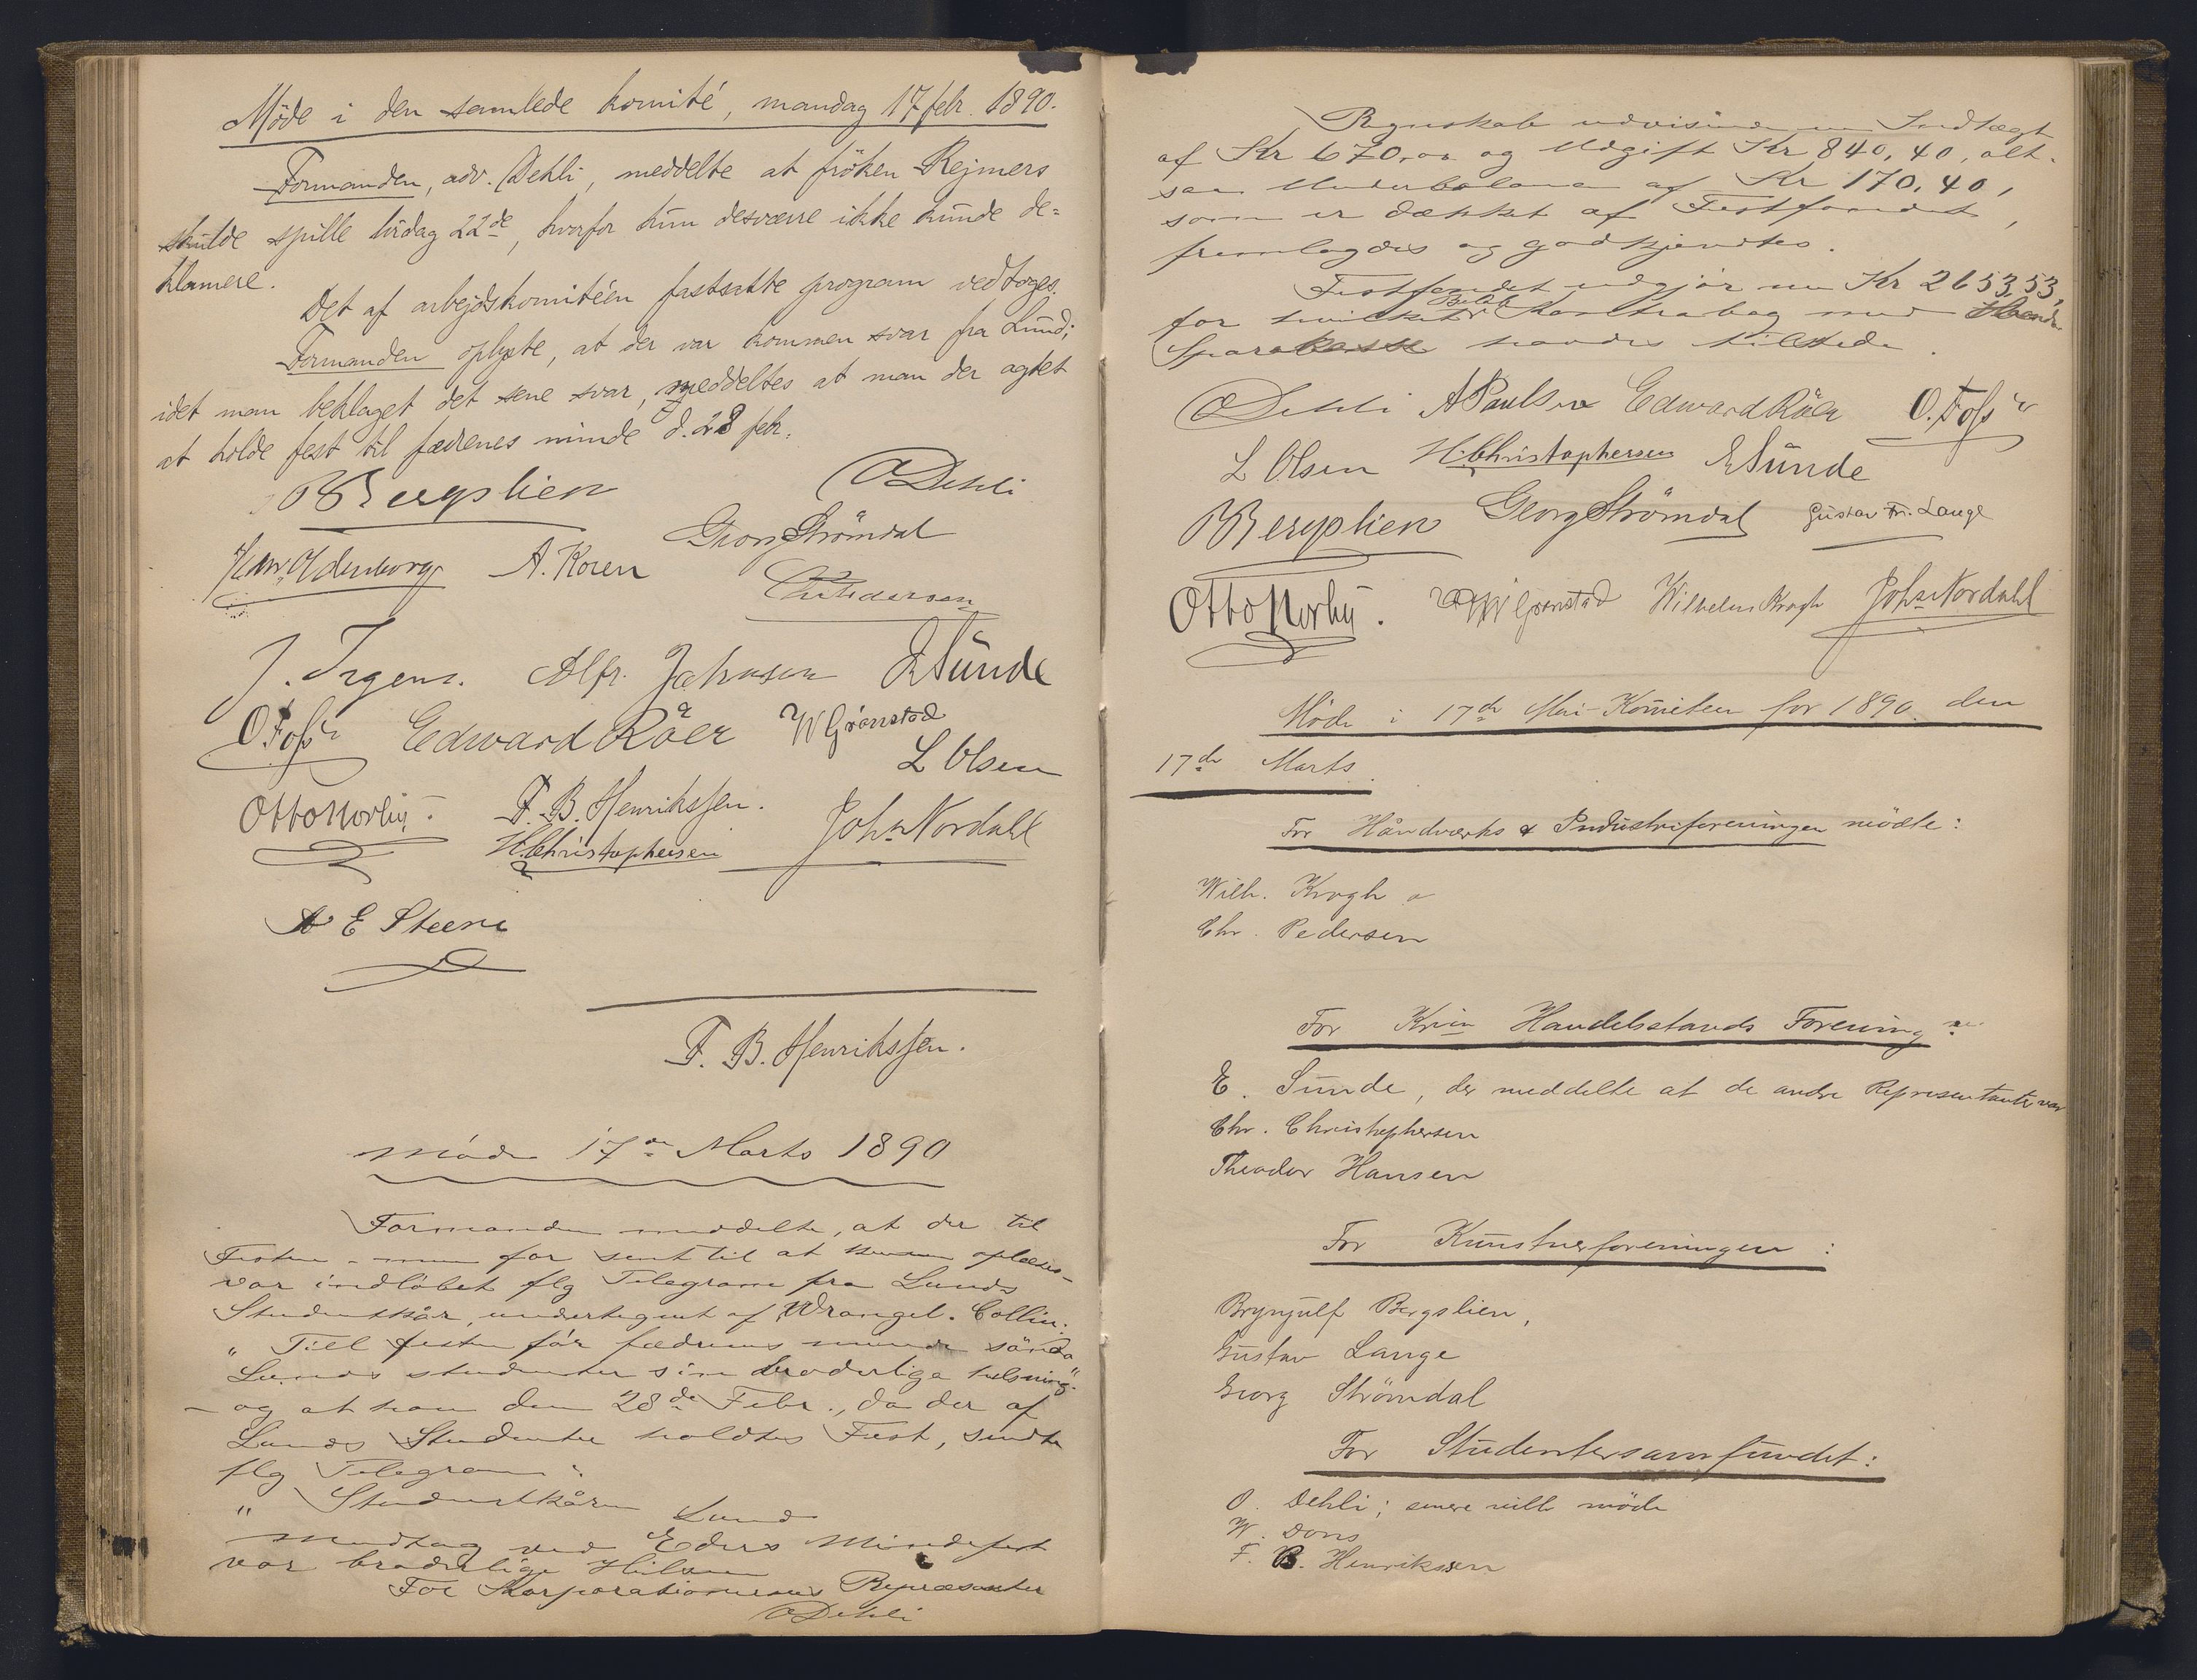 Møde i den samlede komité, mandag 17 febr. 1890.
Formanden, adv. Dehli, meddelte at frøken Rejmers
skulde spille lørdag 22de, hvorfor hun desværre ikke kunde de=
klamere.
Det af arbejdskomitéen fastsatte program vedtoges.
Formanden oplyste, at der var kommen svar fra Lund;
idet man beklaget det sene svar, meddeltes at man der agtet
at holde fest til fædrenes minde d. 28 febr.
B Bergslien
O Dehli
Georg Strømdal
A. Koren
Chr Pedersen
J. Irgens. Alfr. Johnsen E Sunde
O. Foss Edward Råer W Grønstad
L Olsen
Otto Norby. F. B. Henrikssen.
H. Christophersen
John Nordahl
A E Steen
F. B. Henrikssen.
Møde 17de Marts 1890
Formanden meddelte, at der til
Festen - men for sent til at kunne oplæses -
var indløbet flg Telegram fra Lunds
Studentkår, undertegnet af Wrangel. Collin.
" Till festen för fædrenes minde sända
Lunds studenter sin broderliga helsning."
- og at han den 28de Febr., da der af
Lunds Studenter holdtes Fest, sendte
flg Telegram:
" Studentkåren Lund
Modtag ved Eders Mindefest
vor broderlige Hilsen
For Korporationernes Repræsentanter
O Dehli
Regnskab udvisende en Indtægt
af Kr 670,00 og Udgift Kr 840,40, alt-
saa Underbalance af Kr 170,40,
som er dækket af Festfondet,
fremlagdes og godkjendtes.
Festfondet udgjør nu Kr 2653,53,
for hvilket Beløb Kontrabog med
Sparekasse havdes tilstede.
O Dehli A Paulsen Edward Råer O. Foss
L Olsen H. Christophersen E Sunde
B Bergslien Georg Strømdal Gustav Fr. Lange
Otto Norby. W Grønstad Wilhelm Krogh John Nordahl
Møde i 17de Mai-Komiteen for 1890 den
17de Marts
For Håndværks & Industriforeningen mødte:
Wilh. Krogh
Chr. Pedersen
For Kr.ia Handelsstands Forening
E. Sunde, der meddelte at de andre Representanter var
Chr. Christophersen
Theodor Hansen
For Kunstnerforeningen:
Brynjulf Bergslien,
Gustav Lange
Georg Strømdal
For Studentersamfundet:
O. Dehli; senere ville møde
W. Dons
F. B. Henrikssen